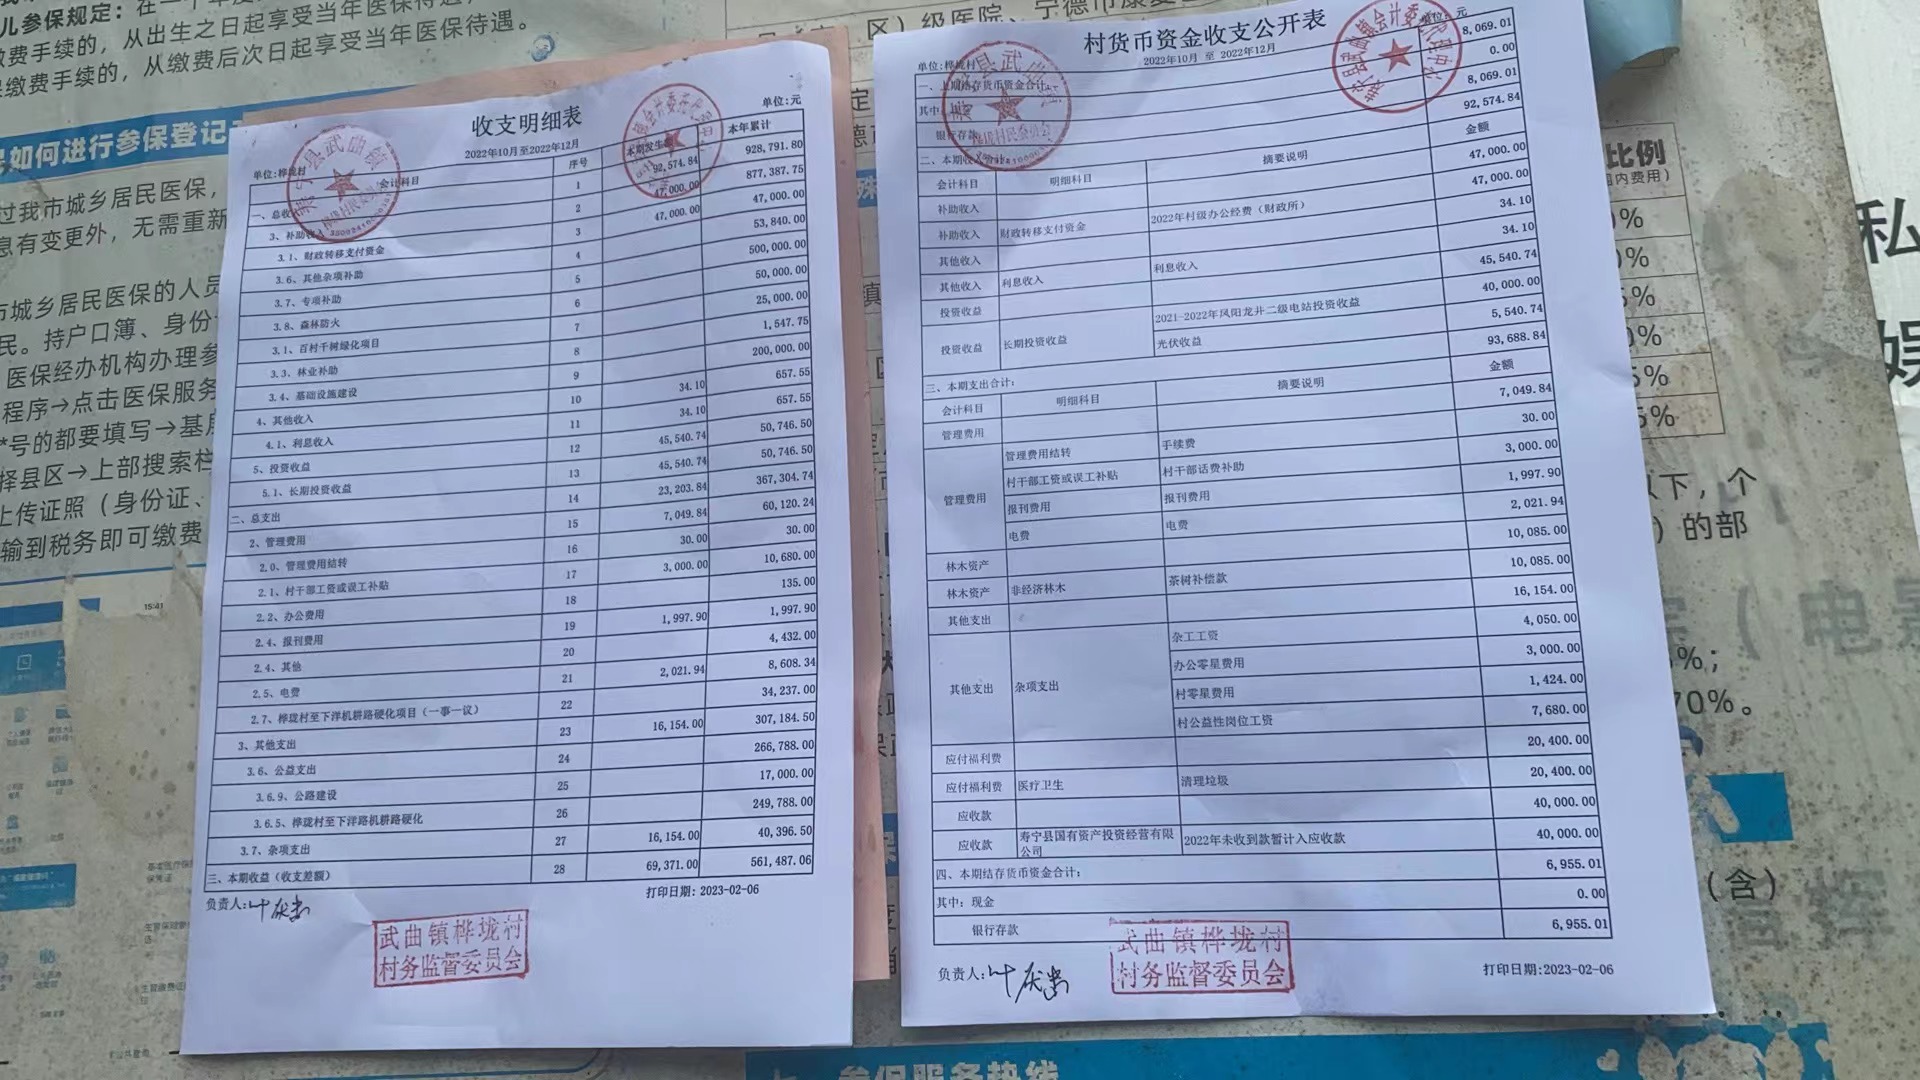 收支明细表
2022年10月至2022年12月
单位:桦垅村
单位:元
会计科目 序号 本期发生 本年累计
一、总收 1 92,574.84 928,791.80
3、补助收入 2 47,000.00 877,387.75
3.1、财政转移支付资金 3 47,000.00 47,000.00
3.6、其他杂项补助 4 53,840.00
3.7、专项补助 5 500,000.00
3.8、森林防火 6 50,000.00
3.1、百村千树绿化项目 7 25,000.00
3.3、林业补助 8 1,547.75
3.4、基础设施建设 9 200,000.00
4、其他收入 10 34.10 657.55
4.1、利息收入 11 34.10 657.55
5、投资收益 12 45,540.74 50,746.50
5.1、长期投资收益 13 45,540.74 50,746.50
二、总支出 14 23,203.84 367,304.74
2、管理费用 15 7,049.84 60,120.24
2.0、管理费用结转 16 30.00 30.00
2.1、村干部工资或误工补贴 17 3,000.00 10,680.00
2.2、办公费用 18 135.00
2.4、报刊费用 19 1,997.90 1,997.90
2.4、其他 20 4,432.00
2.5、电费 21 2,021.94 8,608.34
2.7、桦垅村至下洋机耕路硬化项目(一事一议) 22 34,237.00
3、其他支出 23 16,154.00 307,184.50
3.6、公益支出 24 266,788.00
3.6.9、公路建设 25 17,000.00
3.6.5、桦垅村至下洋路机耕路硬化 26 249,788.00
3.7、杂项支出 27 16,154.00 40,396.50
三、本期收益(收支差额) 28 69,371.00 561,487.06
负责人:
打印日期: 2023-02-06
武曲镇桦垅村
村务监督委员会
村货币资金收支公开表
2022年10月 至 2022年12月
单位:桦垅村
单位:元
一、上期结存货币资金合计: 8,069.01
其中: 0.00
银行存款 8,069.01
二、本期收 92,574.84
会计科目 明细科目 摘要说明 金额
补助收入 47,000.00
补助收入 财政转移支付资金 2022年村级办公经费(财政所) 47,000.00
其他收入 34.10
其他收入 利息收入 利息收入 34.10
投资收益 45,540.74
投资收益 长期投资收益 2021-2022年凤阳龙井二级电站投资收益 40,000.00
光伏收益 5,540.74
三、本期支出合计: 93,688.84
会计科目 明细科目 摘要说明 金额
管理费用 7,049.84
管理费用 管理费用结转 手续费 30.00
村干部工资或误工补贴 村干部话费补助 3,000.00
报刊费用 报刊费用 1,997.90
电费 电费 2,021.94
林木资产 10,085.00
林木资产 非经济林木 茶树补偿款 10,085.00
其他支出 16,154.00
其他支出 杂项支出 杂工工资 4,050.00
办公零星费用 3,000.00
村零星费用 1,424.00
村公益性岗位工资 7,680.00
应付福利费 20,400.00
应付福利费 医疗卫生 清理垃圾 20,400.00
应收款 40,000.00
应收款 寿宁县国有资产投资经营有限公司 2022年未收到款暂计入应收款 40,000.00
四、本期结存货币资金合计: 6,955.01
其中: 现金 0.00
银行存款 6,955.01
负责人:
打印日期:2023-02-06
武曲镇桦垅村
村务监督委员会
儿参保规定:
缴费手续的,从出生之日起享受当年医保待遇,
缴费手续的,从缴费后次日起享受当年医保待遇。
如何进行参保登记
过我市城乡居民医保,
息有变更外,无需重新
市城乡居民医保的人员
民。持户口簿、身份
医保经办机构办理参
程序→点击医保服务
*号的都要填写→基
择县区→上部搜索栏
上传证照(身份证、
输到税务即可缴费
15:41
比例
以下,个
)的部
70%。
(含)
参保服务热线